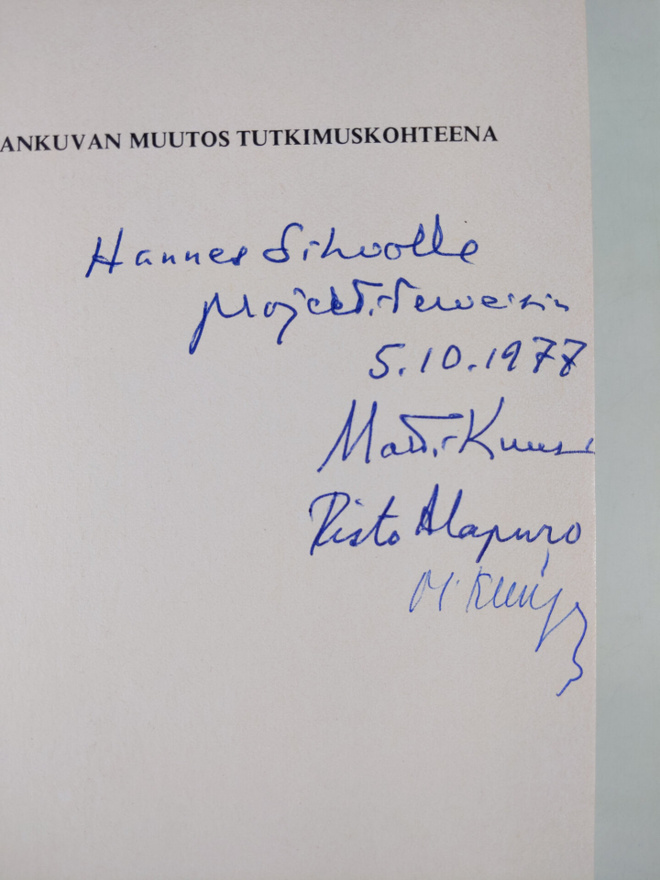 ANKUVAN MUUTOS TUTKIMUSKOHTEENA
Hannes Sihvolle
projektiterveisin
5.10.1977
Matti Kuusi
Risto Alapuro
M. Klinge